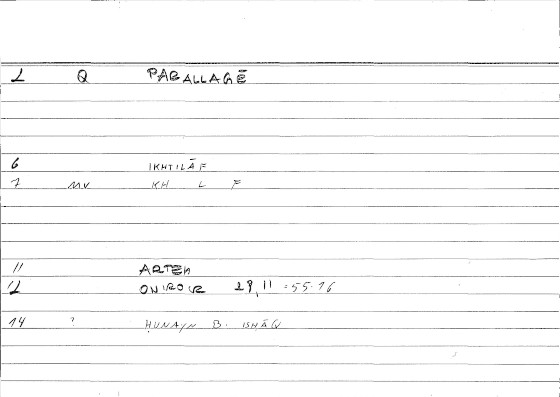 1 Q PARALLAGĒ
6 IKHTILĀF
7 MV KH L F
11 ARTEM
12 ONIROCR 29,11 = 55.16
14 ? ḤUNAYN B. ISḤĀQ